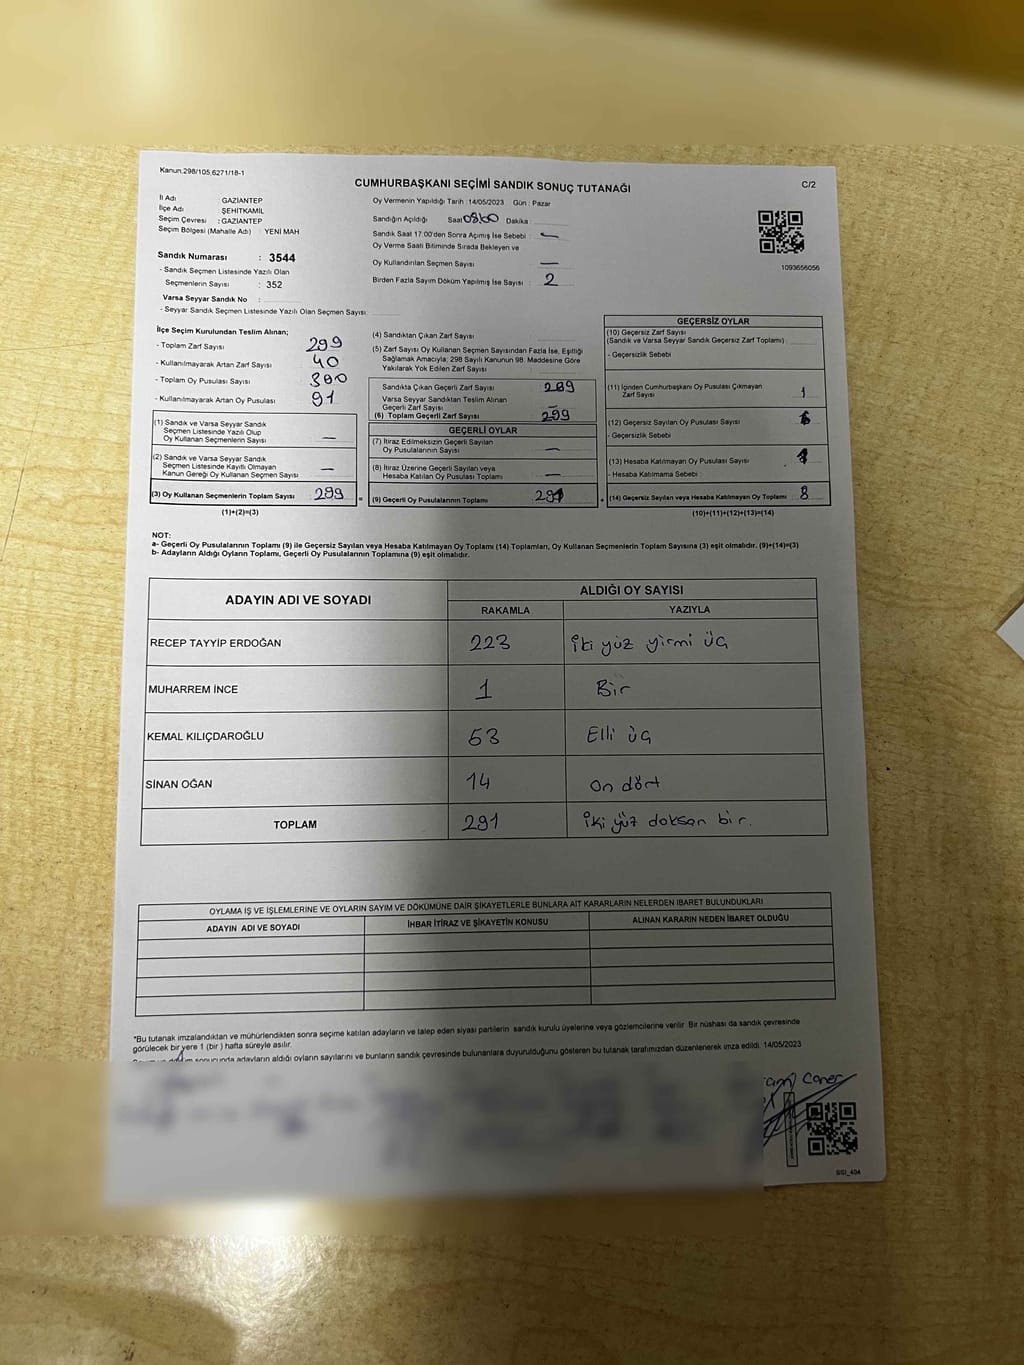 Kanun:298/105,6271/18-1
CUMHURBAŞKANI SEÇİMİ SANDIK SONUÇ TUTANAĞI
C/2
İl Adı : GAZİANTEP
İlçe Adı : ŞEHİTKAMİL
Seçim Çevresi : GAZİANTEP
Seçim Bölgesi (Mahalle Adı) : YENİ MAH
Sandık Numarası : 3544
- Sandık Seçmen Listesinde Yazılı Olan
Seçmenlerin Sayısı : 352
Varsa Seyyar Sandık No :
- Seyyar Sandık Seçmen Listesinde Yazılı Olan Seçmen Sayısı :
Oy Vermenin Yapıldığı Tarih : 14/05/2023 Gün : Pazar
Sandığın Açıldığı Saat Dakika :
Sandık Saat 17:00'den Sonra Açımış İse Sebebi : —
Oy Verme Saati Bitiminde Sırada Bekleyen ve
Oy Kullandırılan Seçmen Sayısı : —
Birden Fazla Sayım Döküm Yapılmış İse Sayısı : 2
1093656056
İlçe Seçim Kurulundan Teslim Alınan;
- Toplam Zarf Sayısı : 299
- Kullanılmayarak Artan Zarf Sayısı : 40
- Toplam Oy Pusulası Sayısı : 
- Kullanılmayarak Artan Oy Pusulası : 91
(1) Sandık ve Varsa Seyyar Sandık
Seçmen Listesinde Yazılı Olup
Oy Kullanan Seçmenlerin Sayısı —
(2) Sandık ve Varsa Seyyar Sandık
Seçmen Listesinde Kayıtlı Olmayan
Kanun Gereği Oy Kullanan Seçmen Sayısı —
(3) Oy Kullanan Seçmenlerin Toplam Sayısı 299 =
(1)+(2)=(3)
(4) Sandıktan Çıkan Zarf Sayısı :
(5) Zarf Sayısı Oy Kullanan Seçmen Sayısından Fazla İse, Eşitliği
Sağlamak Amacıyla; 298 Sayılı Kanunun 98. Maddesine Göre
Yakılarak Yok Edilen Zarf Sayısı :
Sandıkta Çıkan Geçerli Zarf Sayısı : 299
Varsa Seyyar Sandıktan Teslim Alınan
Geçerli Zarf Sayısı : —
(6) Toplam Geçerli Zarf Sayısı : 299
GEÇERLİ OYLAR
(7) İtiraz Edilmeksizin Geçerli Sayılan
Oy Pusulalarının Sayısı : —
(8) İtiraz Üzerine Geçerli Sayılan veya
Hesaba Katılan Oy Pusulası Toplamı : —
(9) Geçerli Oy Pusulalarının Toplamı : 291 +
GEÇERSİZ OYLAR
(10) Geçersiz Zarf Sayısı
(Sandık ve Varsa Seyyar Sandık Geçersiz Zarf Toplamı) :
- Geçersizlik Sebebi :
(11) İçinden Cumhurbaşkanı Oy Pusulası Çıkmayan
Zarf Sayısı : 1
(12) Geçersiz Sayılan Oy Pusulası Sayısı :
- Geçersizlik Sebebi :
(13) Hesaba Katılmayan Oy Pusulası Sayısı :
- Hesaba Katılmama Sebebi :
(14) Geçersiz Sayılan veya Hesaba Katılmayan Oy Toplamı : 8
(10)+(11)+(12)+(13)=(14)
NOT:
a- Geçerli Oy Pusulasının Toplamı (9) ile Geçersiz Sayılan veya Hesaba Katılmayan Oy Toplamı (14) Toplamları, Oy Kullanan Seçmenlerin Toplam Sayısına (3) eşit olmalıdır. (9)+(14)=(3)
b- Adayların Aldığı Oyların Toplamı, Geçerli Oy Pusulalarının Toplamına (9) eşit olmalıdır.
ADAYIN ADI VE SOYADI
ALDIĞI OY SAYISI
RAKAMLA YAZIYLA
RECEP TAYYİP ERDOĞAN 223 İki yüz yirmi üç
MUHARREM İNCE 1 Bir
KEMAL KILIÇDAROĞLU 53 Elli üç
SİNAN OĞAN 14 On dört
TOPLAM 291 İki yüz doksan bir.
OYLAMA İŞ VE İŞLEMLERİNE VE OYLARIN SAYIM VE DÖKÜMÜNE DAİR ŞİKAYETLERLE BUNLARA AİT KARARLARIN NELERDEN İBARET BULUNDUKLARI
ADAYIN ADI VE SOYADI İHBAR İTİRAZ VE ŞİKAYETİN KONUSU ALINAN KARARIN NEDEN İBARET OLDUĞU
*Bu tutanak imzalandıktan ve mühürlendikten sonra seçime katılan adayların ve talep eden siyasi partilerin sandık kurulu üyelerine veya gözlemcilerine verilir. Bir nüshası da sandık çevresinde
görülecek bir yere 1 (bir ) hafta süreyle asılır.
sonucunda adayların aldığı oyların sayılarını ve bunların sandık çevresinde bulunanlara duyurulduğunu gösteren bu tutanak tarafımızdan düzenlenerek imza edildi. 14/05/2023
Caner